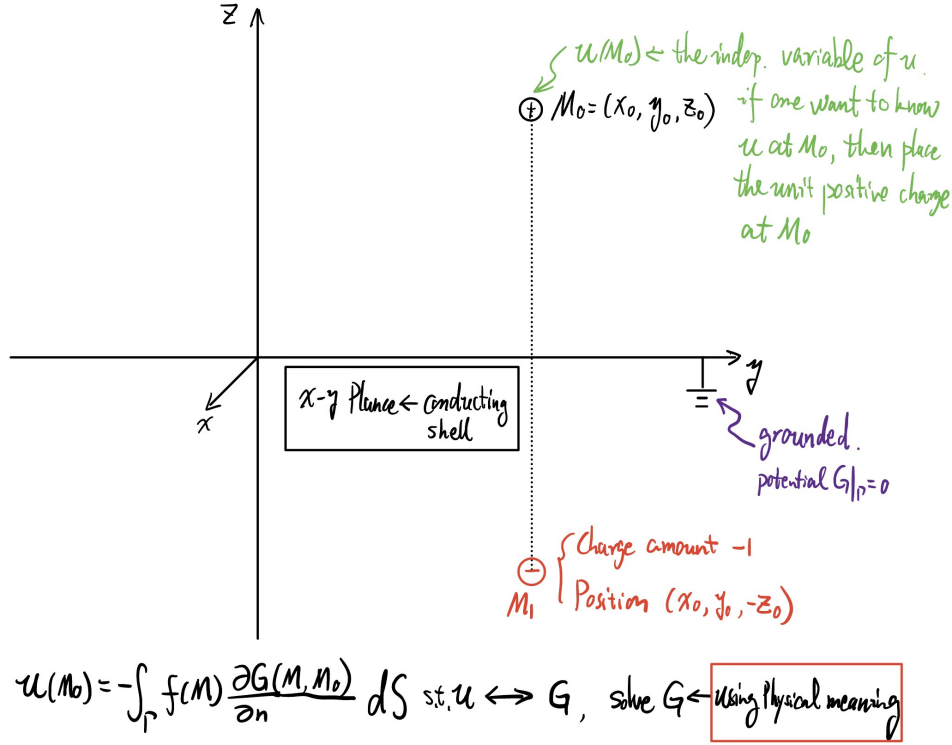 z
u(M₀) ← the indep. variable of u.
⊕ M₀=(x₀, y₀, z₀)
if one want to know
u at M₀, then place
the unit positive charge
at M₀
y
x
x-y Plance ← conducting
shell
grounded.
potential G|_Γ=0
⊖
M₁
{ Charge amount -1
Position (x₀, y₀, -z₀)
u(M₀) = -∫_Γ f(M) ∂G(M, M₀)/∂n dS s.t. u ↔ G, solve G ← Using Physical meaning